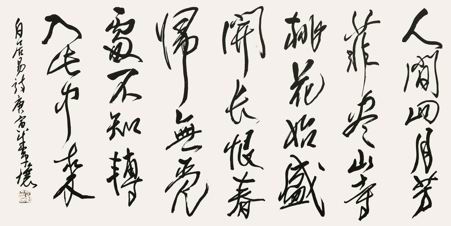 人間四月芳
菲盡山寺
桃花始盛
開長恨春
歸無覓
處不知轉
入此中來
白居易詩庚寅